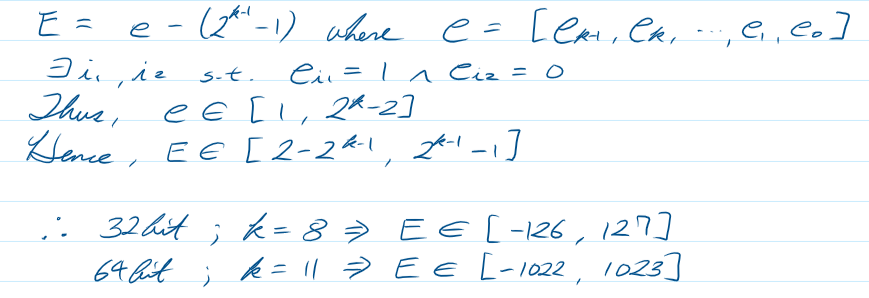 E = e - (2^{k-1} - 1) where e = [e_{k-1}, e_k, ..., e_1, e_0]
∃i_1, i_2 s.t. e_{i_1} = 1 ∧ e_{i_2} = 0
Thus, e ∈ [1, 2^k-2]
Hence, E ∈ [2-2^{k-1}, 2^{k-1}-1]
∴ 32bit ; k = 8 ⇒ E ∈ [-126, 127]
64bit ; k = 11 ⇒ E ∈ [-1022, 1023]